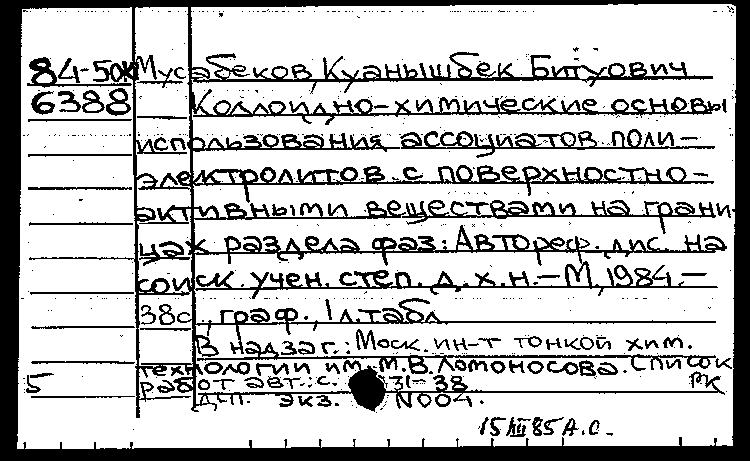 84-50К Мусабеков, Куанышбек Битуович
6388 Коллоидно-химические основы
использования ассоциатов поли-
электролитов с поверхностно-
активными веществами на грани-
цах раздела фаз: Автореф. дис. на
соиск. учен. степ. д. х. н. – М, 1984. –
38с., граф., 1 л. табл.
В надзаг.: Моск. ин-т тонкой хим.
технологии им. М.В. Ломоносова. Список
5 работ авт.: с. 31-38 РК
Деп. экз. N004.
15 III 85 А.С.